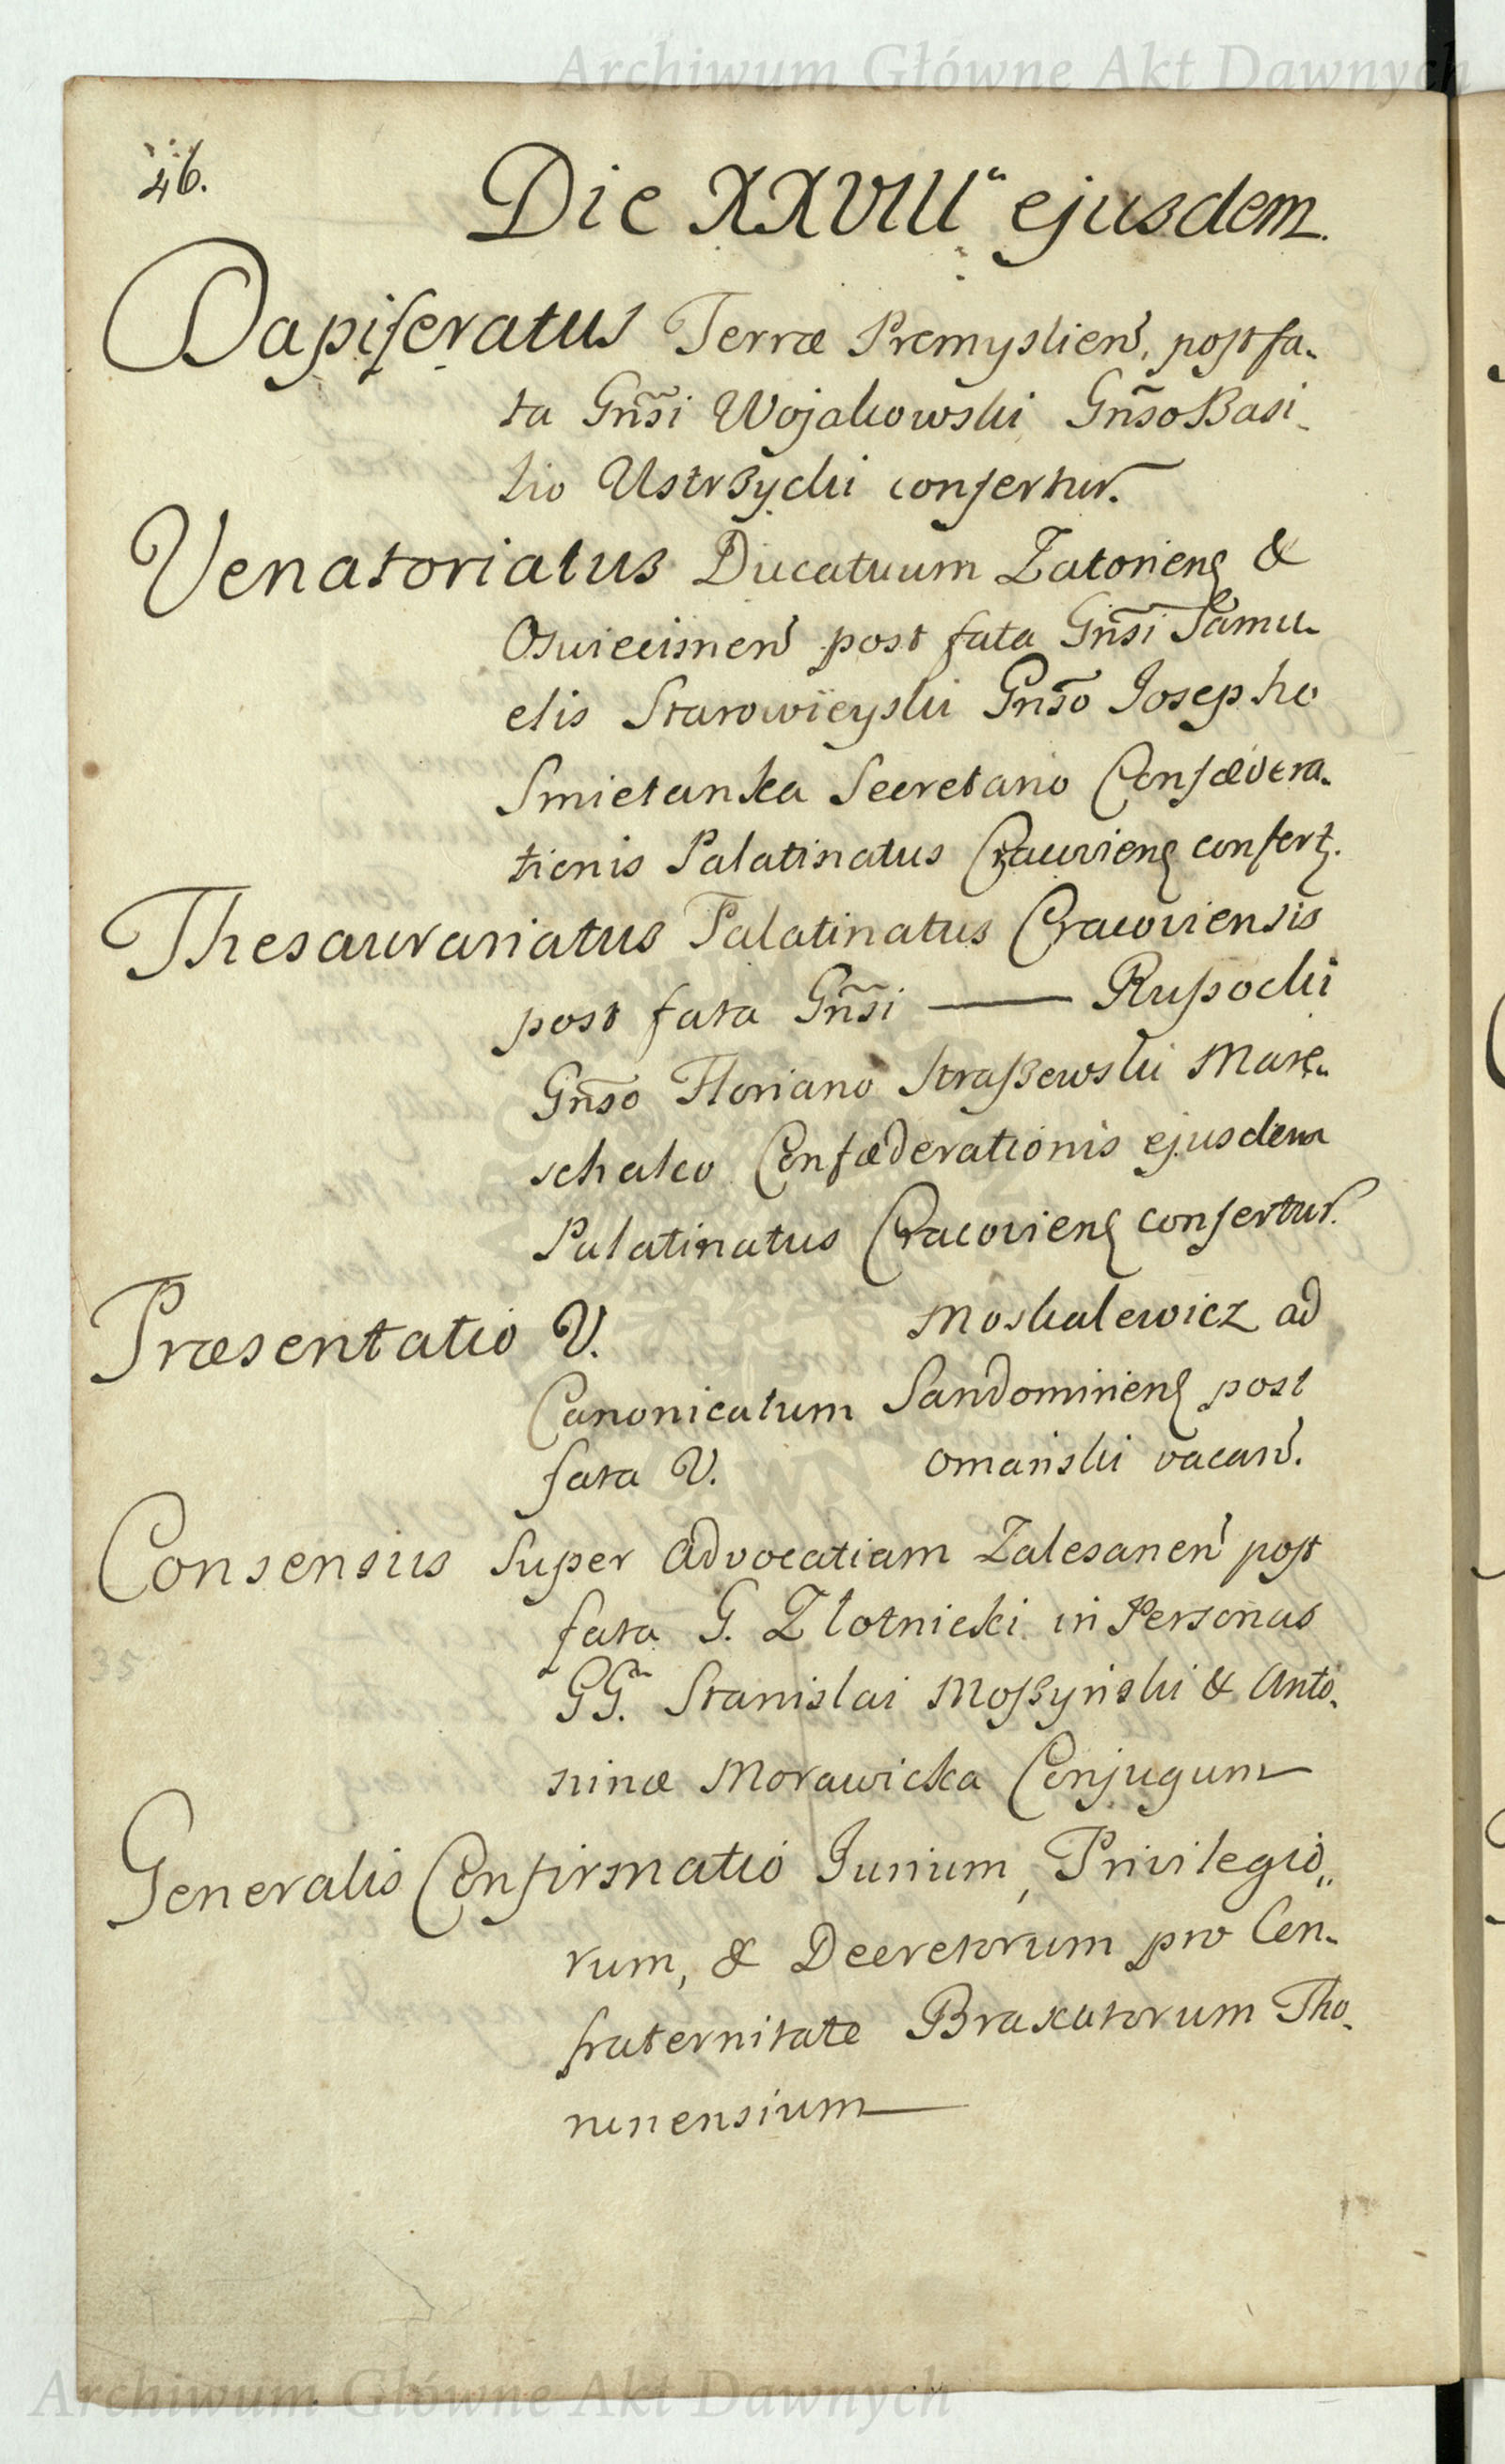 Archiwum Główne Akt Dawnych
46.
Die XXVIIIª ejusdem.
Dapiferatus Terræ Premyslien, post fa-
ta Gñsi Wojakowski Gñso Basi-
lio Ustrzycki confertur.
Venatoriatus Ducatuum Zatoriens &
Oswiecimen post fata Gñsi Samu-
elis Starowieyski Gñso Josepho
Smietanka Secretario Confœdera-
tionis Palatinatus Cracoviens confert.
Thesaurariatus Palatinatus Cracoviensis
post fata Gñsi — Rupocki
Gñso Floriano Straszewski Mare-
schalco Confœderationis ejusdem
Palatinatus Cracoviens confertur.
Præsentatio V. Moskalewicz ad
Canonicatum Sandomiriens post
fata V. omański vacan.
Consensus super Advocatiam Zalesanen post
fata G. Złotnicki in Personas
GG. Stanislai Moszyński & Anto-
ninæ Morawicka Conjugum
Generalis Confirmatio Jurium, Privilegio-
rum, & Decretorum pro Con-
fraternitate Braxatorum Tho-
runensium
Archiwum Główne Akt Dawnych